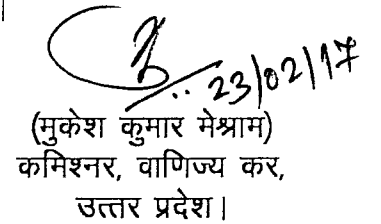 23/02/17
(मुकेश कुमार मेश्राम)
कमिश्नर, वाणिज्य कर,
उत्तर प्रदेश।